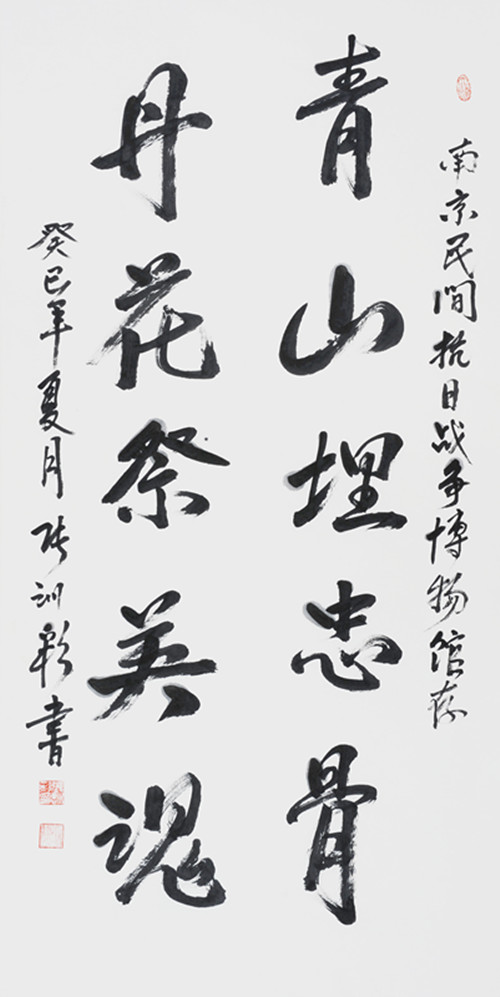 南京民间抗日战争博物馆存
青山埋忠骨
丹花祭英魂
癸巳年夏月张训彩书